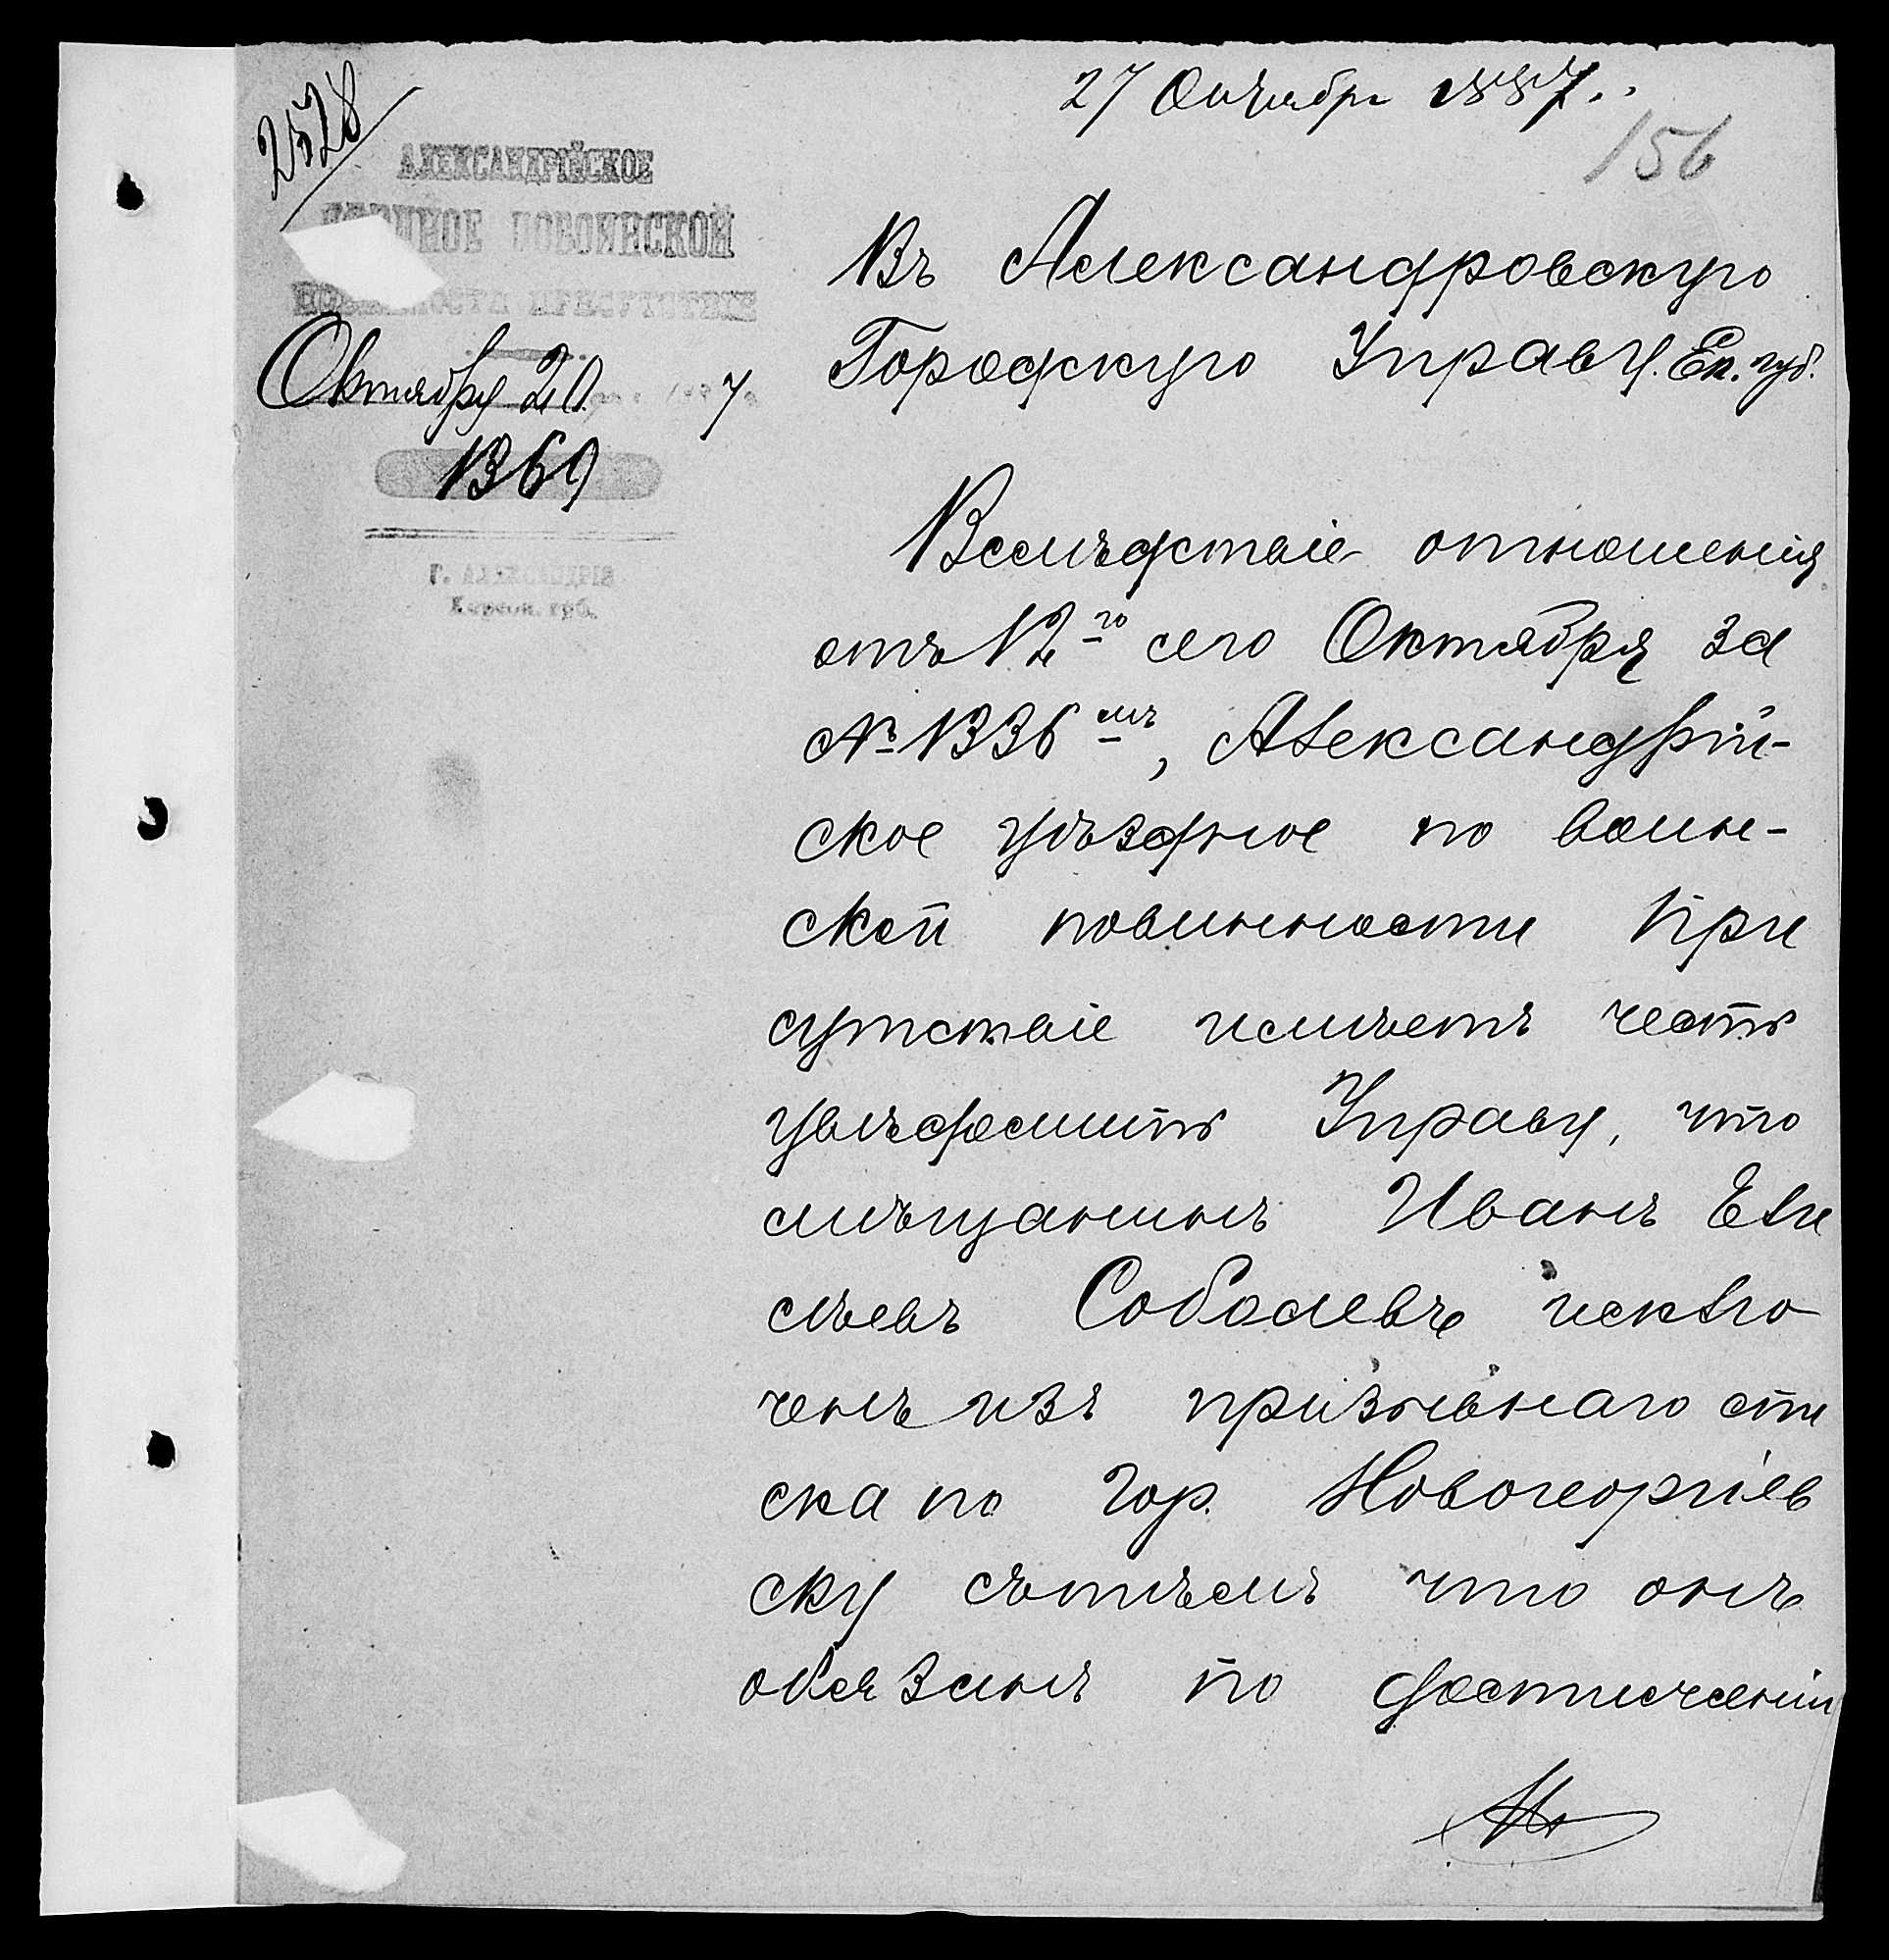 27 Октября 1887.
2528
156
АЛЕКСАНДРІЙСКОЕ
ПОВОИНСКОЙ
ПРИСУТСТВІЕ
Октября 20 7
1369
Г. АЛЕКСАНДРІЯ
Херсон. губ.
Въ Александровскую
Городскую Управу. Ек. губ.
Вслѣдствіе отношенія
отъ 12го сего Октября за
№ 1336мъ, Александрій-
ское уѣздное по воин-
ской повинности При
сутствіе имѣетъ честь
увѣдомить Управу, что
мѣщанинъ Иванъ Ели
сѣевъ Соболевъ исклю
ченъ изъ призывнаго спи
ска по гор. Новогеоргіев
ску съ тѣмъ что онъ
обязанъ по достиженіи